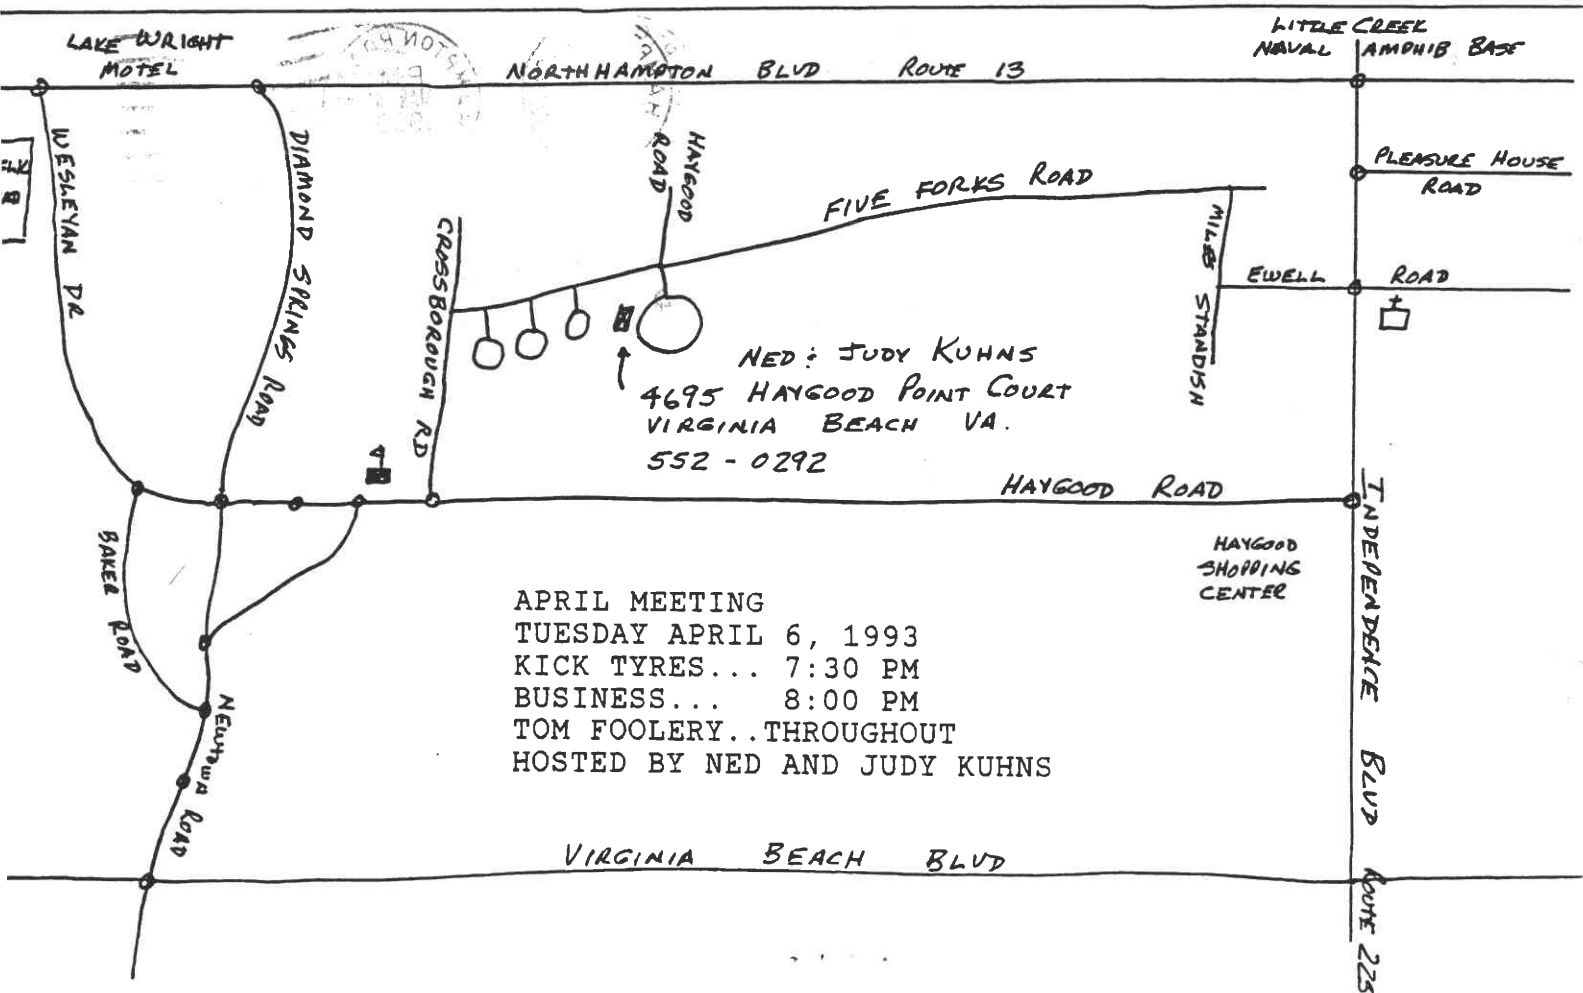 LAKE WRIGHT
MOTEL
NORTHHAMPTON BLVD ROUTE 13
LITTLE CREEK
NAVAL AMPHIB BASE
WESLEYAN DR
DIAMOND SPRINGS ROAD
CROSSBOROUGH RD
HAYGOOD
ROAD
FIVE FORKS ROAD
MILES STANDISH
PLEASURE HOUSE
ROAD
EWELL ROAD
NED & JUDY KUHNS
4695 HAYGOOD POINT COURT
VIRGINIA BEACH VA.
552-0292
HAYGOOD ROAD
HAYGOOD
SHOPPING
CENTER
INDEPENDENCE BLVD ROUTE 225
BAKER ROAD
NEWTOWN ROAD
APRIL MEETING
TUESDAY APRIL 6, 1993
KICK TYRES... 7:30 PM
BUSINESS... 8:00 PM
TOM FOOLERY..THROUGHOUT
HOSTED BY NED AND JUDY KUHNS
VIRGINIA BEACH BLVD